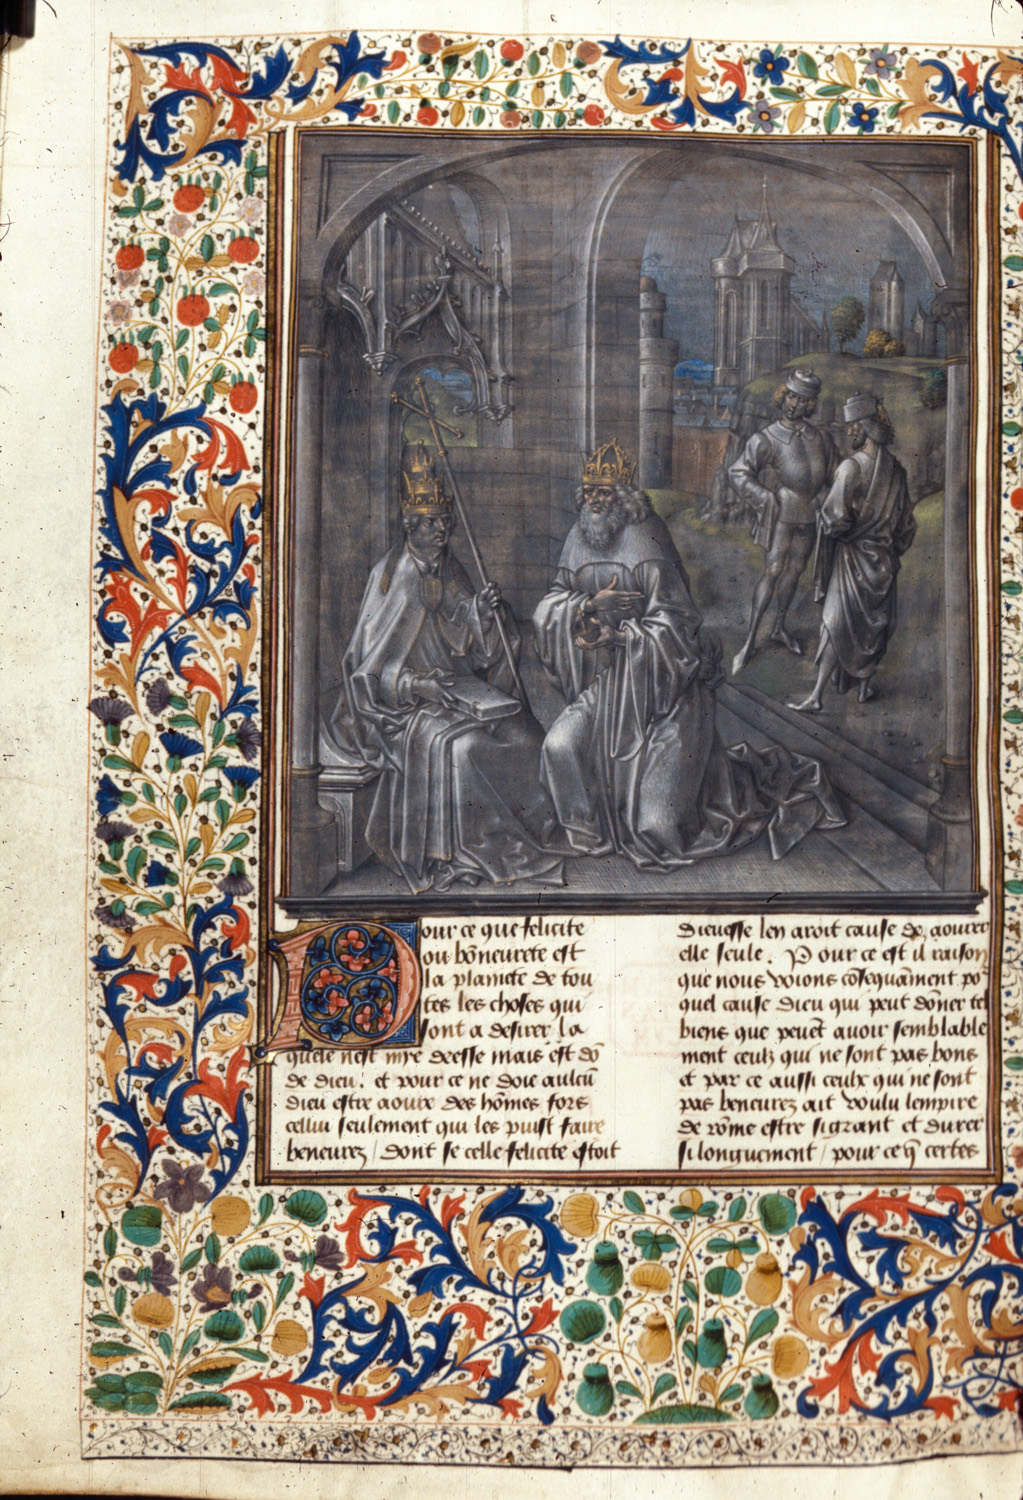 Pour ce que felicite
ou bōneurete est
la plainete de tou
tes les choses qui
sont a desirer la
quele nest mie deesse mais est dō
de dieu. et pour ce ne doie aulcū
dieu estre aoure des hōmes fors
cellui seulement qui les puist faire
beneurez / dont se celle felicite estoit
dieuesse len aroit cause de aourer
elle seule. Pour ce est il raison
que nous voions cōsequāment po᷑
quel cause dieu qui peut dōner tel
biens que peuēt auoir semblable
ment ceulz qui ne sont pas bons
et par ce aussi ceulx qui ne sont
pas beneurez ait voulu lempire
de rōme estre si grant et durer
si longuement / pour ce q̄ certes